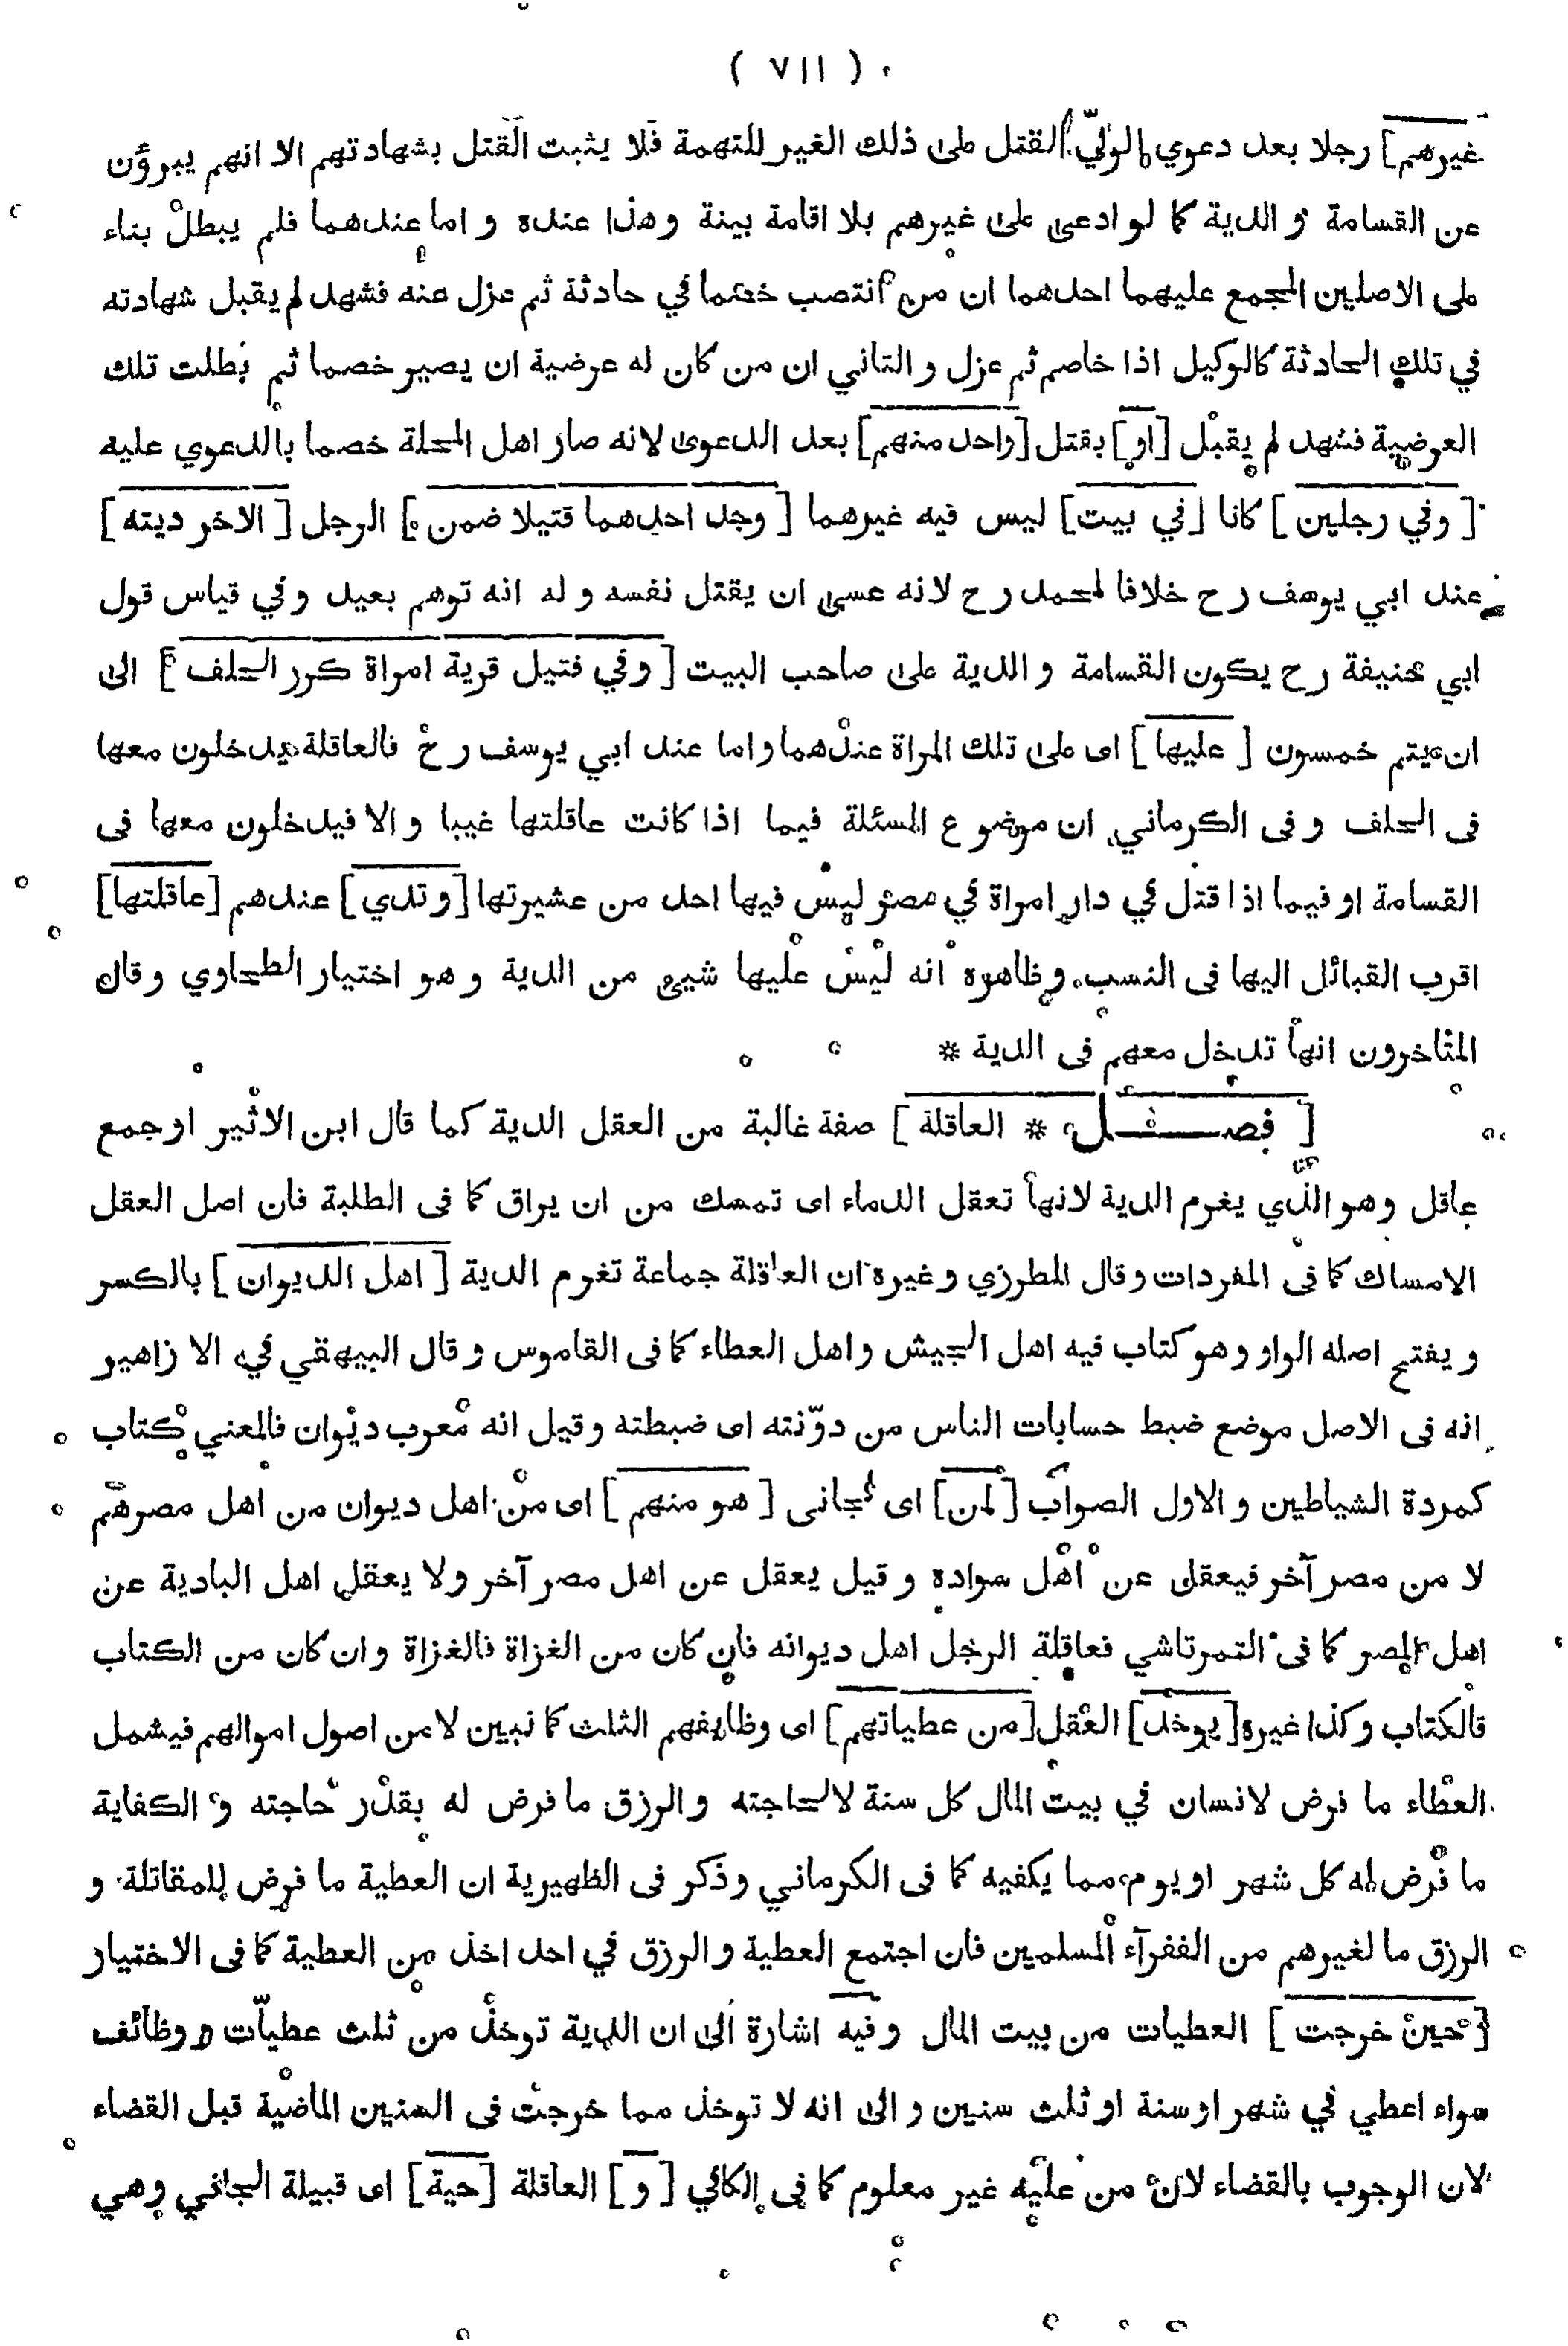 ( ٧١١ )
غيرهم] رجلا بعد دعوي الوليّ القتل على ذلك الغير للتهمة فلا يثبت القتل بشهادتهم الا انهم يبرؤن
عن القسامة و الدية كما لو ادعى على غيرهم بلا اقامة بينة وهذا عنده و اما عندهما فلم يبطل بناء
على الاصلين المجمع عليهما احدهما ان من انتصب خصما في حادثة ثم عزل عنه فشهد لم يقبل شهادته
في تلك الحادثة كالوكيل اذا خاصم ثم عزل و الثاني ان من كان له عرضية ان يصير خصما ثم بطلت تلك
العرضية فشهد لم يقبل [او] بقتل [واحد منهم] بعد الدعوى لانه صار اهل المحلة خصما بالدعوي عليه
[وفي رجلين] كانا [في بيت] ليس فيه غيرهما [وجد احدهما قتيلا ضمن] الرجل [الاخر ديته]
عند ابي يوسف رح خلافا لمحمد رح لانه عسى ان يقتل نفسه و له انه توهم بعيد وفي قياس قول
ابي حنيفة رح يكون القسامة و الدية على صاحب البيت [وفي قتيل قرية امراة كرر الحلف] الى
ان يتم خمسون [عليها] اى على تلك المراة عندهما و اما عند ابي يوسف رح فالعاقلة يدخلون معها
فى الحلف وفى الكرماني ان موضوع المسئلة فيما اذا كانت عاقلتها غيبا و الا فيدخلون معها فى
القسامة او فيما اذا قتل في دار امراة في مصر ليس فيها احد من عشيرتها [وتدي] عندهم [عاقلتها]
اقرب القبائل اليها فى النسب وظاهره انه ليس عليها شيئ من الدية و هو اختيار الطحاوي وقال
المتاخرون انها تدخل معهم فى الدية *
[فصـــل * العاقلة] صفة غالبة من العقل الدية كما قال ابن الاثير او جمع
عاقل وهو الذي يغرم الدية لانها تعقل الدماء اى تمسك من ان يراق كما فى الطلبة فان اصل العقل
الامساك كما فى المفردات وقال المطرزي وغيره ان العاقلة جماعة تغرم الدية [اهل الديوان] بالكسر
و يفتح اصله الواو وهو كتاب فيه اهل الجيش واهل العطاء كما فى القاموس وقال البيهقي في الا زاهير
انه فى الاصل موضع ضبط حسابات الناس من دوّنته اى ضبطته وقيل انه معرب ديوان فالمعني كتاب
كمردة الشياطين و الاول الصواب [لمن] اى لجانى [هو منهم] اى من اهل ديوان من اهل مصرهم
لا من مصر آخر فيعقل عن اهل سواده وقيل يعقل عن اهل مصر آخر ولا يعقل اهل البادية عن
اهل المصر كما فى التمرتاشي فعاقلة الرجل اهل ديوانه فان كان من الغزاة فالغزاة وان كان من الكتاب
فالكتاب وكذا غيره [يوخذ] العقل [من عطياتهم] اى وظايفهم الثلث كما نبين لا من اصول اموالهم فيشمل
العطاء ما فرض لانسان في بيت المال كل سنة لا لحاجته و الرزق ما فرض له بقدر حاجته و الكفاية
ما فرض له كل شهر او يوم مما يكفيه كما فى الكرماني وذكر فى الظهيرية ان العطية ما فرض للمقاتلة و
الرزق ما لغيرهم من الفقرآء المسلمين فان اجتمع العطية و الرزق في احد اخذ من العطية كما فى الاختيار
[حين خرجت] العطيات من بيت المال وفيه اشارة الى ان الدية توخذ من ثلث عطيات و وظائف
سواء اعطي في شهر او سنة او ثلث سنين و الى انه لا توخذ مما خرجت فى السنين الماضية قبل القضاء
لان الوجوب بالقضاء لان من عليه غير معلوم كما في الكافي [و] العاقلة [حية] اى قبيلة الجاني وهي